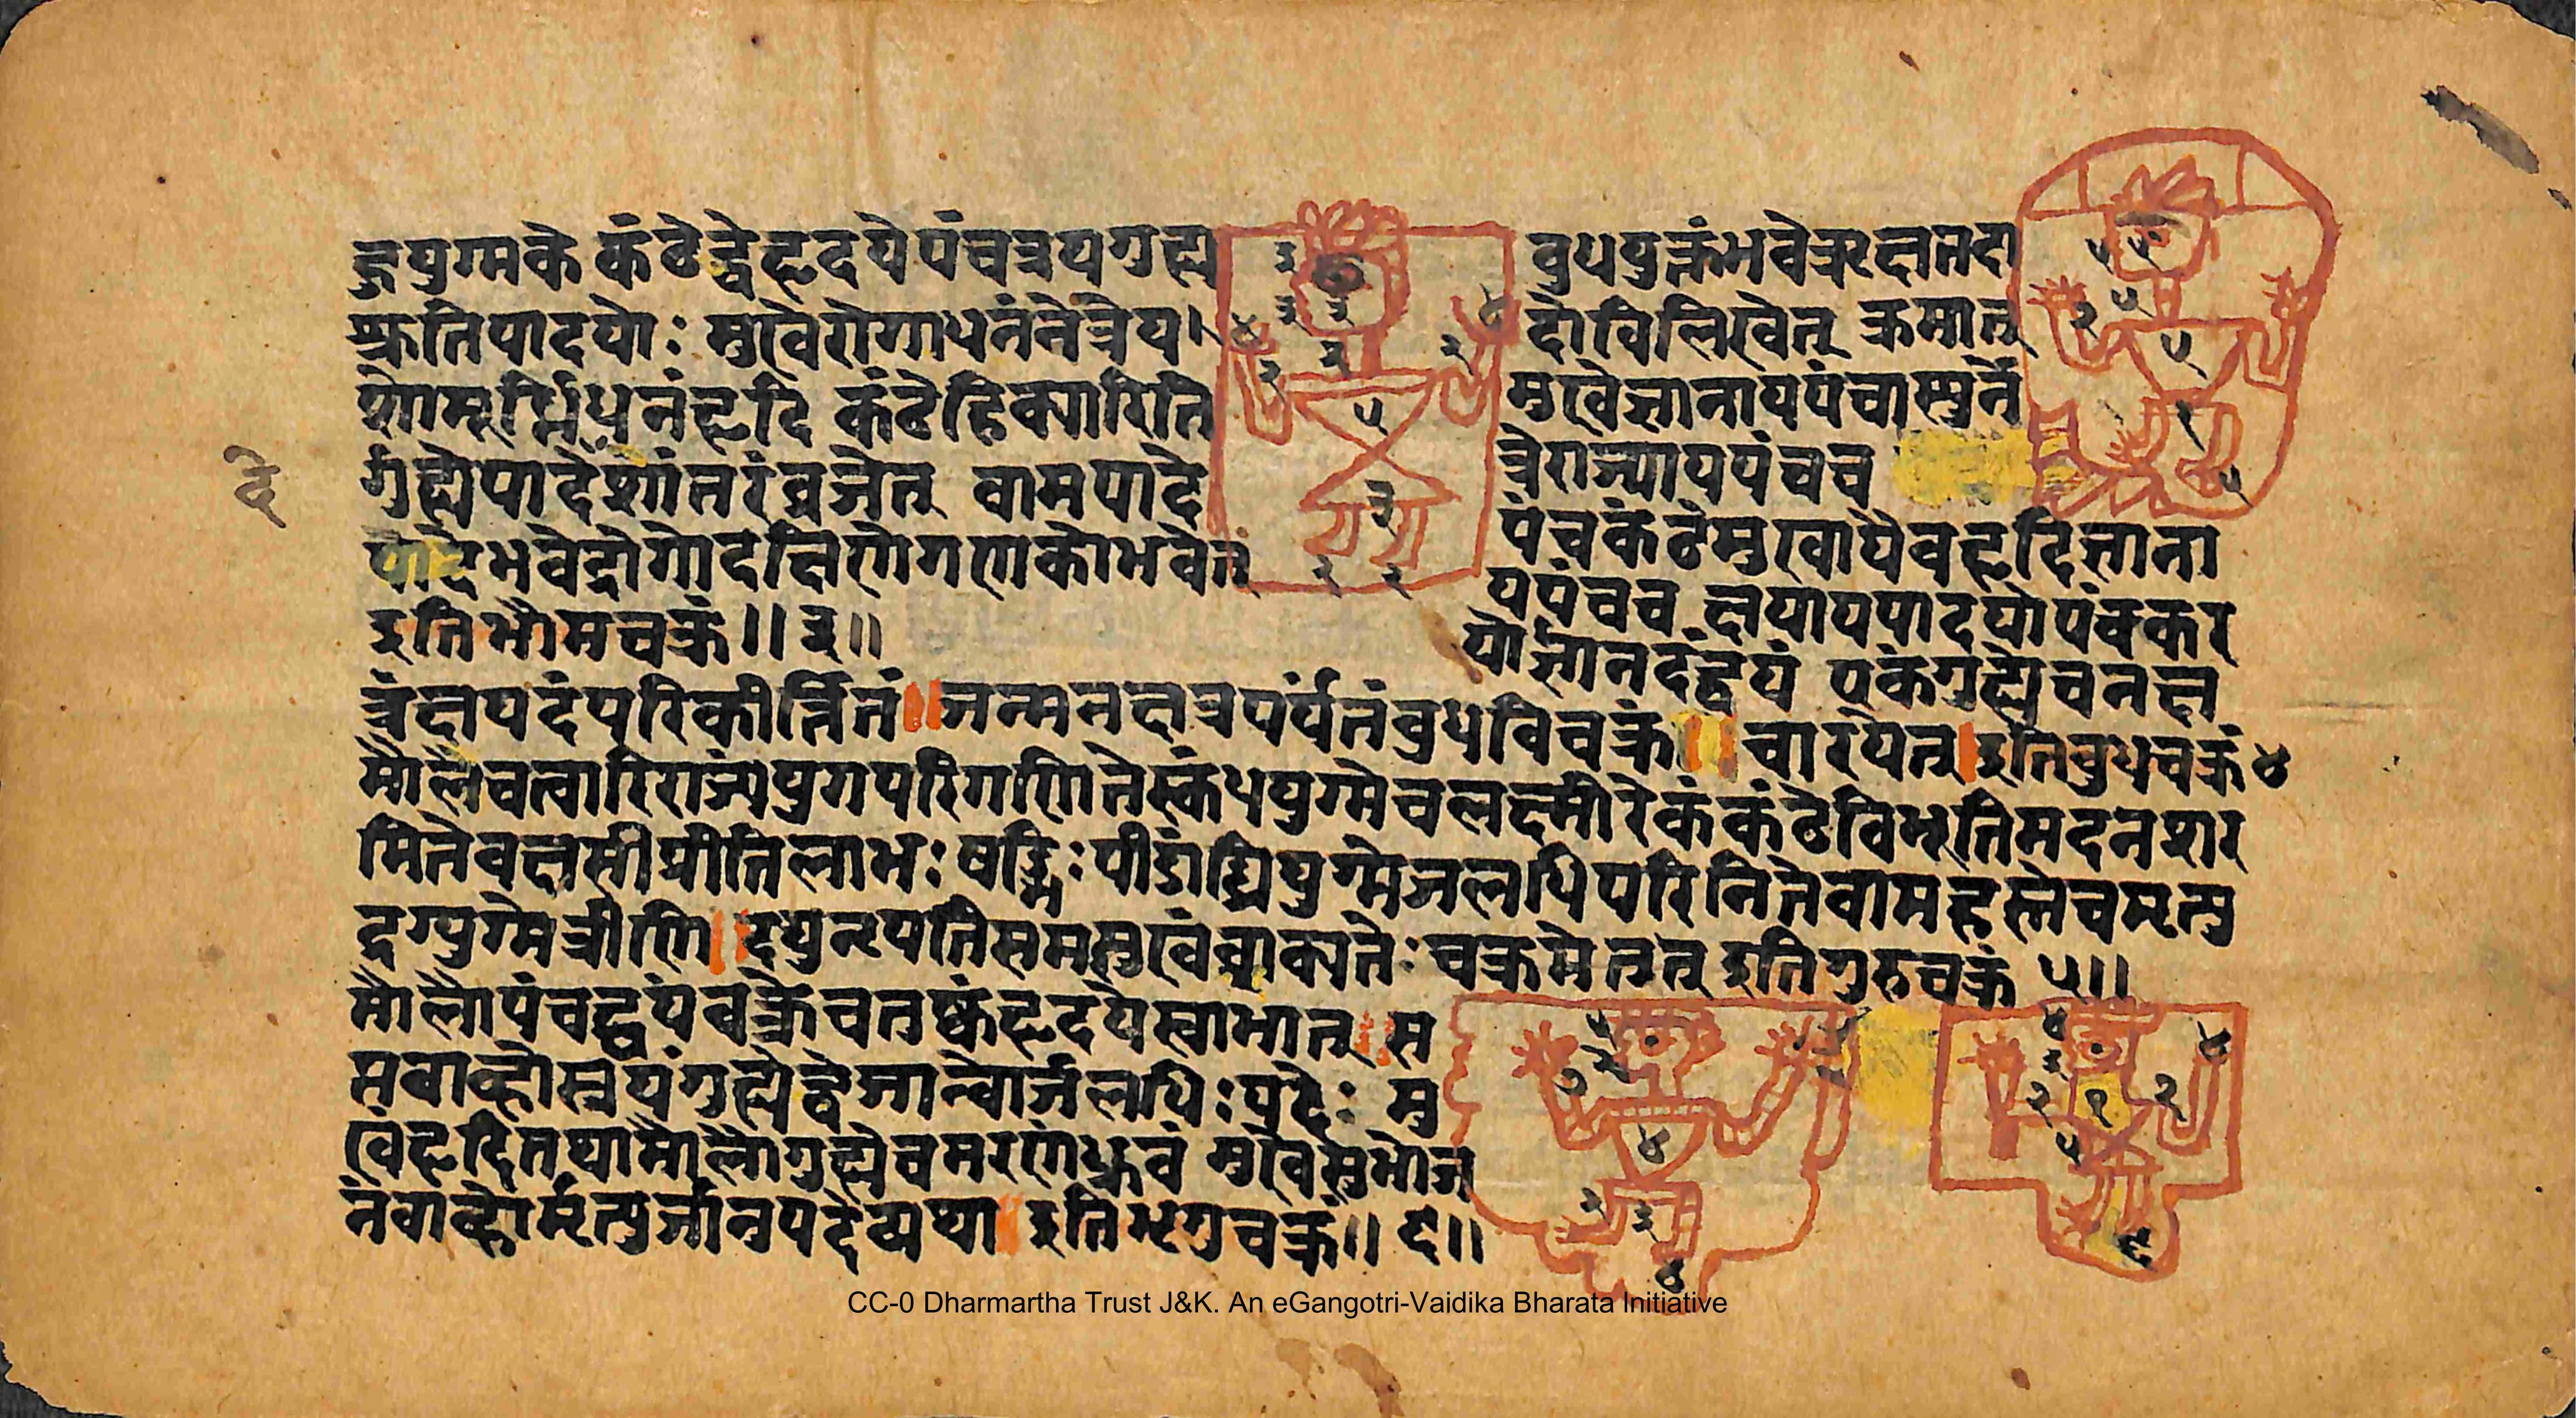 हुयुग्मके कंठेद्वेहृदयेपंचत्रयगुह्य
मुखेरोगोधनंनेत्रेय।
मूर्ध्निधनंहृदि कंठेहिक्कारिति
गुह्येपादेशांतरंव्रजेत् वामपादे
पादेभवेद्रोगोदक्षिणेगणकोभवेत्
इतिभौमचक्रं॥३॥
बुधयुक्तंभवेत्रृक्षतदा
दौविलिखेत् क्रमात्
मुखेज्ञानायपंचास्युर्ने
त्रेराज्यायपंचच
पंचकंठेमुखायैवहृदिज्ञाना
यपंचच क्षयायपादयोपंचकर
योर्ज्ञानदंद्वयं एकंगुह्येचनक्ष
त्रंक्षयदंपरिकीर्त्तितं॥जन्मनक्षत्रपर्यंतंबुधविचक्रं॥चारयेत्।इतिबुधचक्रं४
मौलैचत्वारिराज्यंयुगपरिगणितेस्कंधयुग्मेचलक्ष्मीरेकंकंठेविभूतिमदनशर
मितेवक्षसीप्रीतिलाभः षड्भिः पीडांघ्रियुग्मेजलधिपरिनितेवामहस्तेचमृत्यु
द्रग्युग्मेत्रीणि।दद्युन्टपतिसमसुखंवाक्पतेः चक्रमेतत् इतिगुरुचक्रं ५॥
मौलौपंचद्वयंवक्त्रेचतष्कंहृदयेस्वाभात्।स
मबाव्होस्त्रयंगुह्येद्वेजान्वोर्जलधिः पदेः मु
खेहृदितथामौलौगुह्येचमरणंध्रुवं मुखेसुभोज
नंबाव्होर्मृत्युर्जानपदेव्यथा।इतिभृगुचक्रं॥६॥
CC-0 Dharmartha Trust J&K. An eGangotri-Vaidika Bharata Initiative